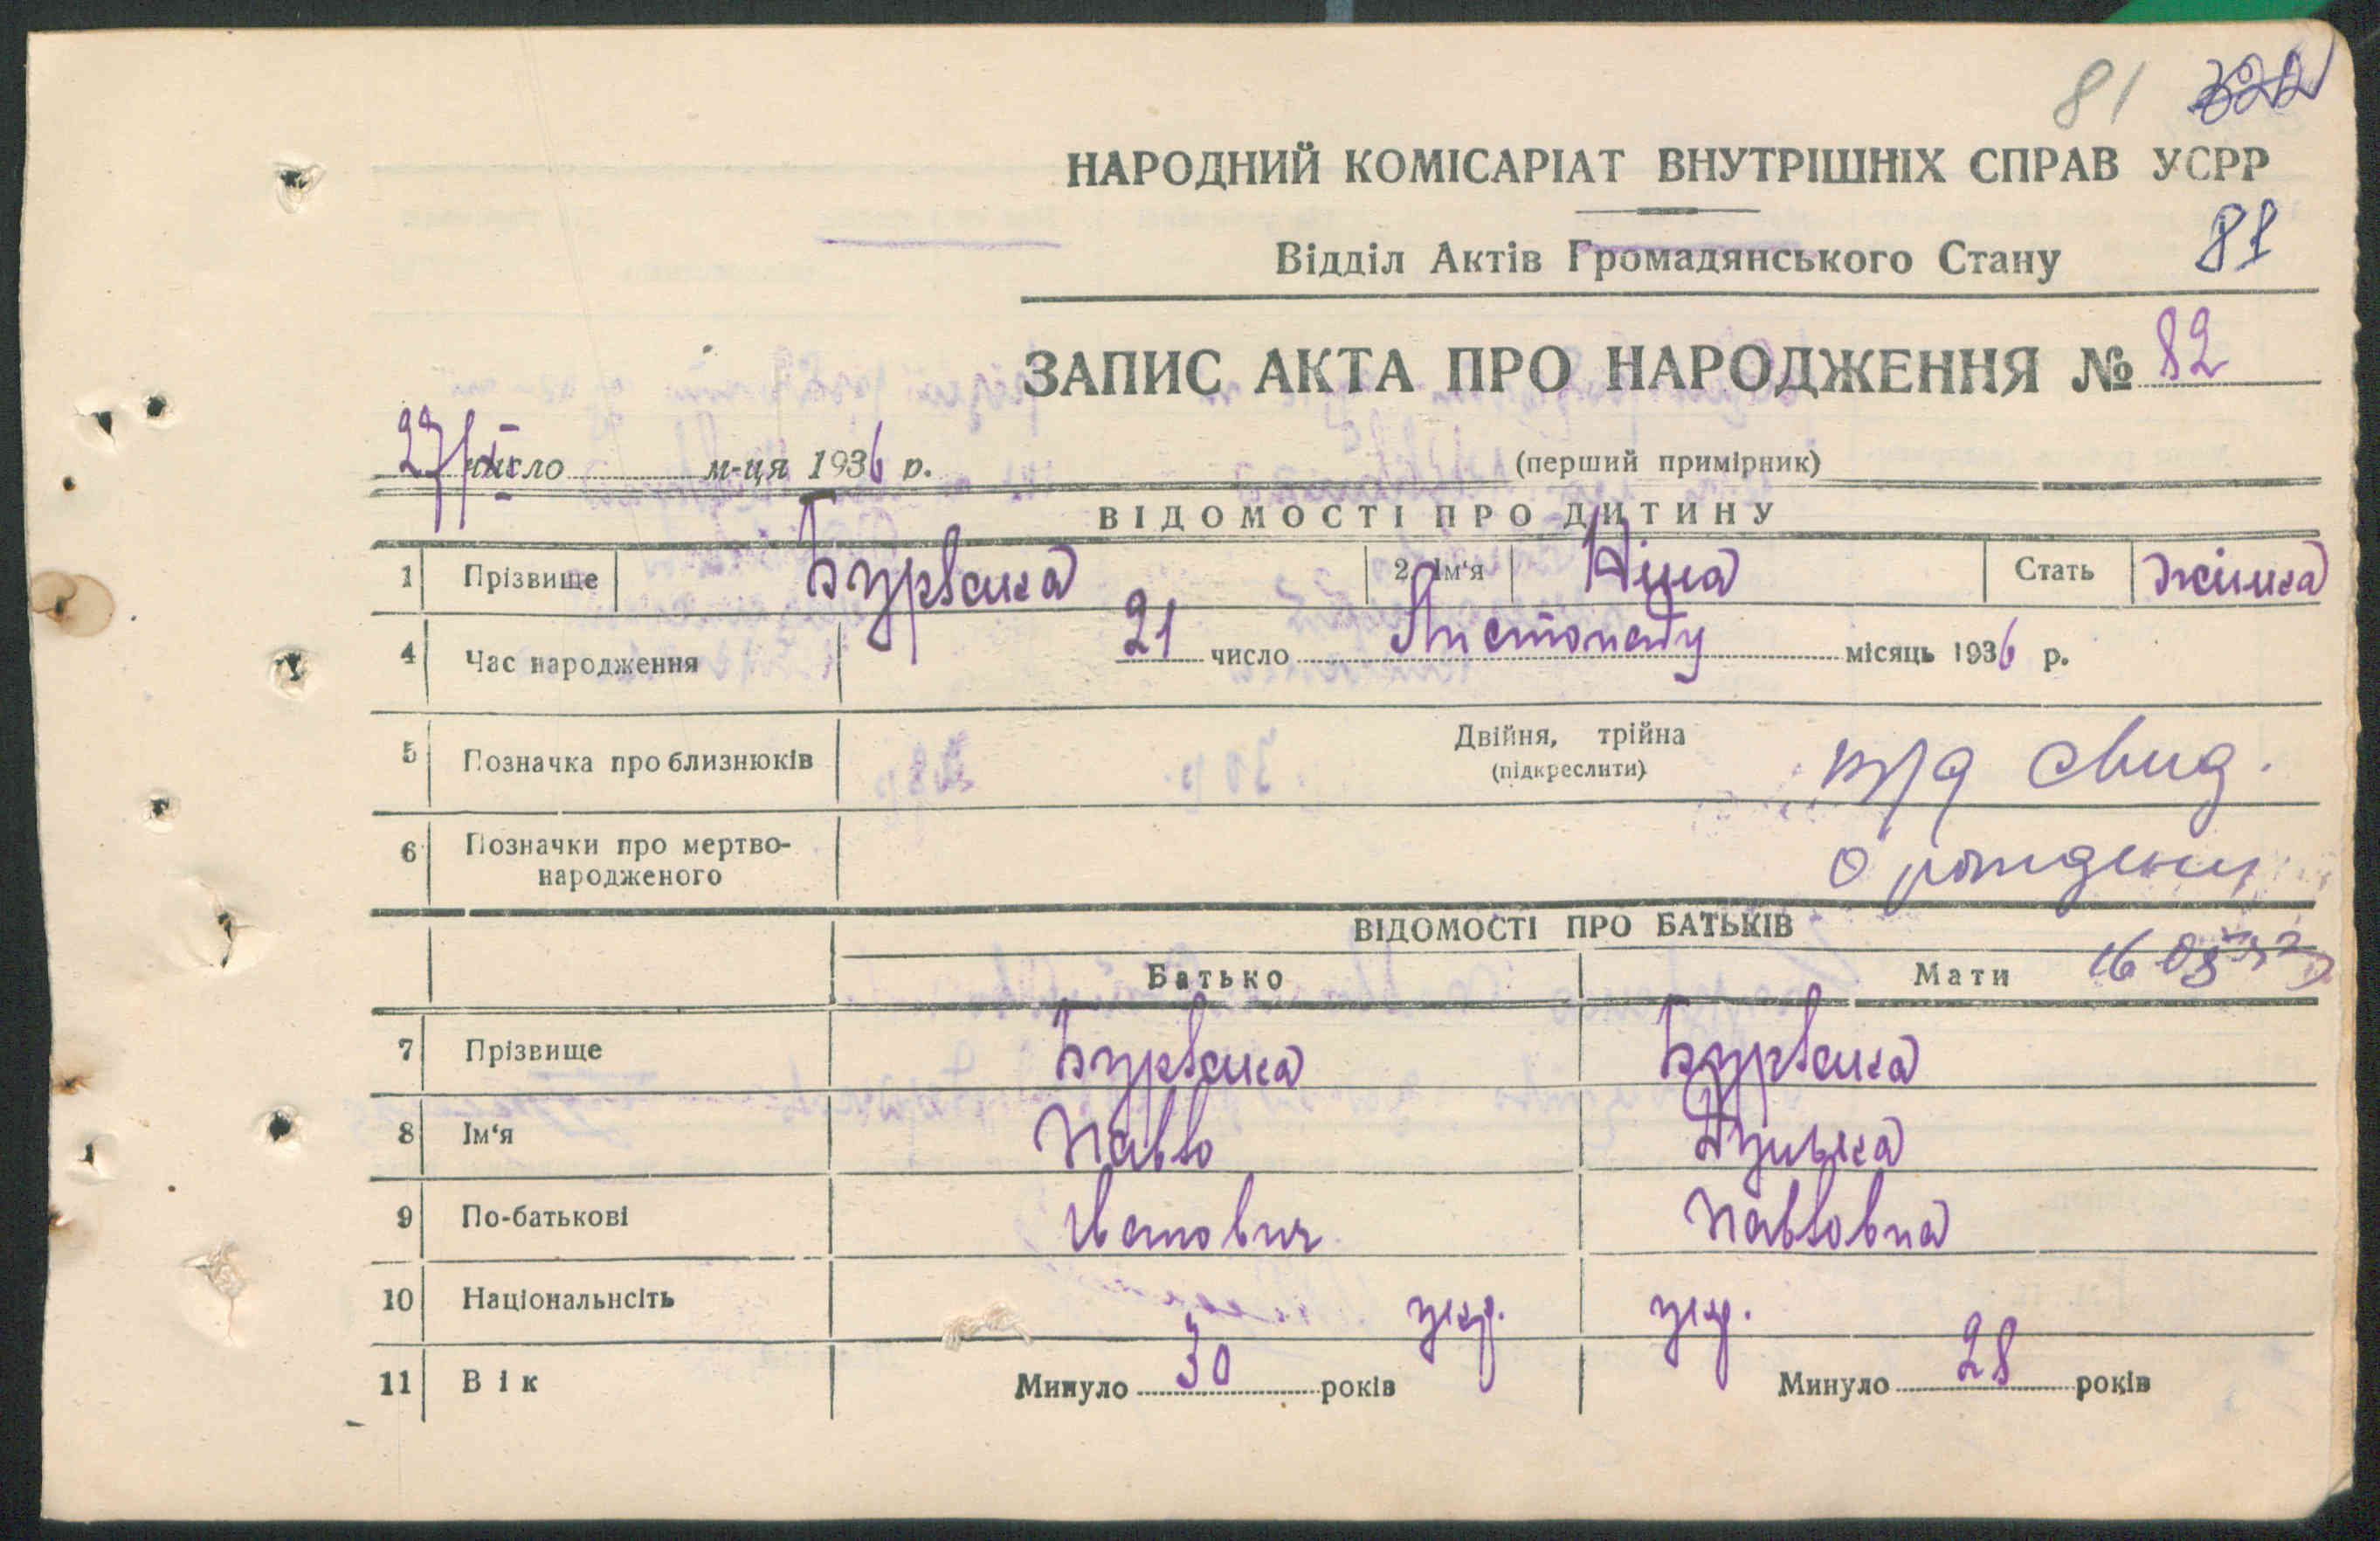 81 322
НАРОДНИЙ КОМІСАРІАТ ВНУТРІШНІХ СПРАВ УСРР
Відділ Актів Громадянського Стану 81
ЗАПИС АКТА ПРО НАРОДЖЕННЯ № 82
27/XI число м-ця 1936 р. (перший примірник)
ВІДОМОСТІ ПРО ДИТИНУ
1 Прізвище Бурвака 2. Ім'я Ніна Стать жінка
4 Час народження 21 число Листопаду місяць 1936 р.
5 Позначка про близнюків Двійня, трійна
(підкреслити)
свид.
6 Позначки про мертво-
народженого
о рожден
ВІДОМОСТІ ПРО БАТЬКІВ
Батько Мати 16 08
7 Прізвище Бурвака Бурвака
8 Ім'я Павло
9 По-батькові Іванович Павловна
10 Національнсіть укр. укр.
11 Вік Минуло 30 років Минуло 28 років